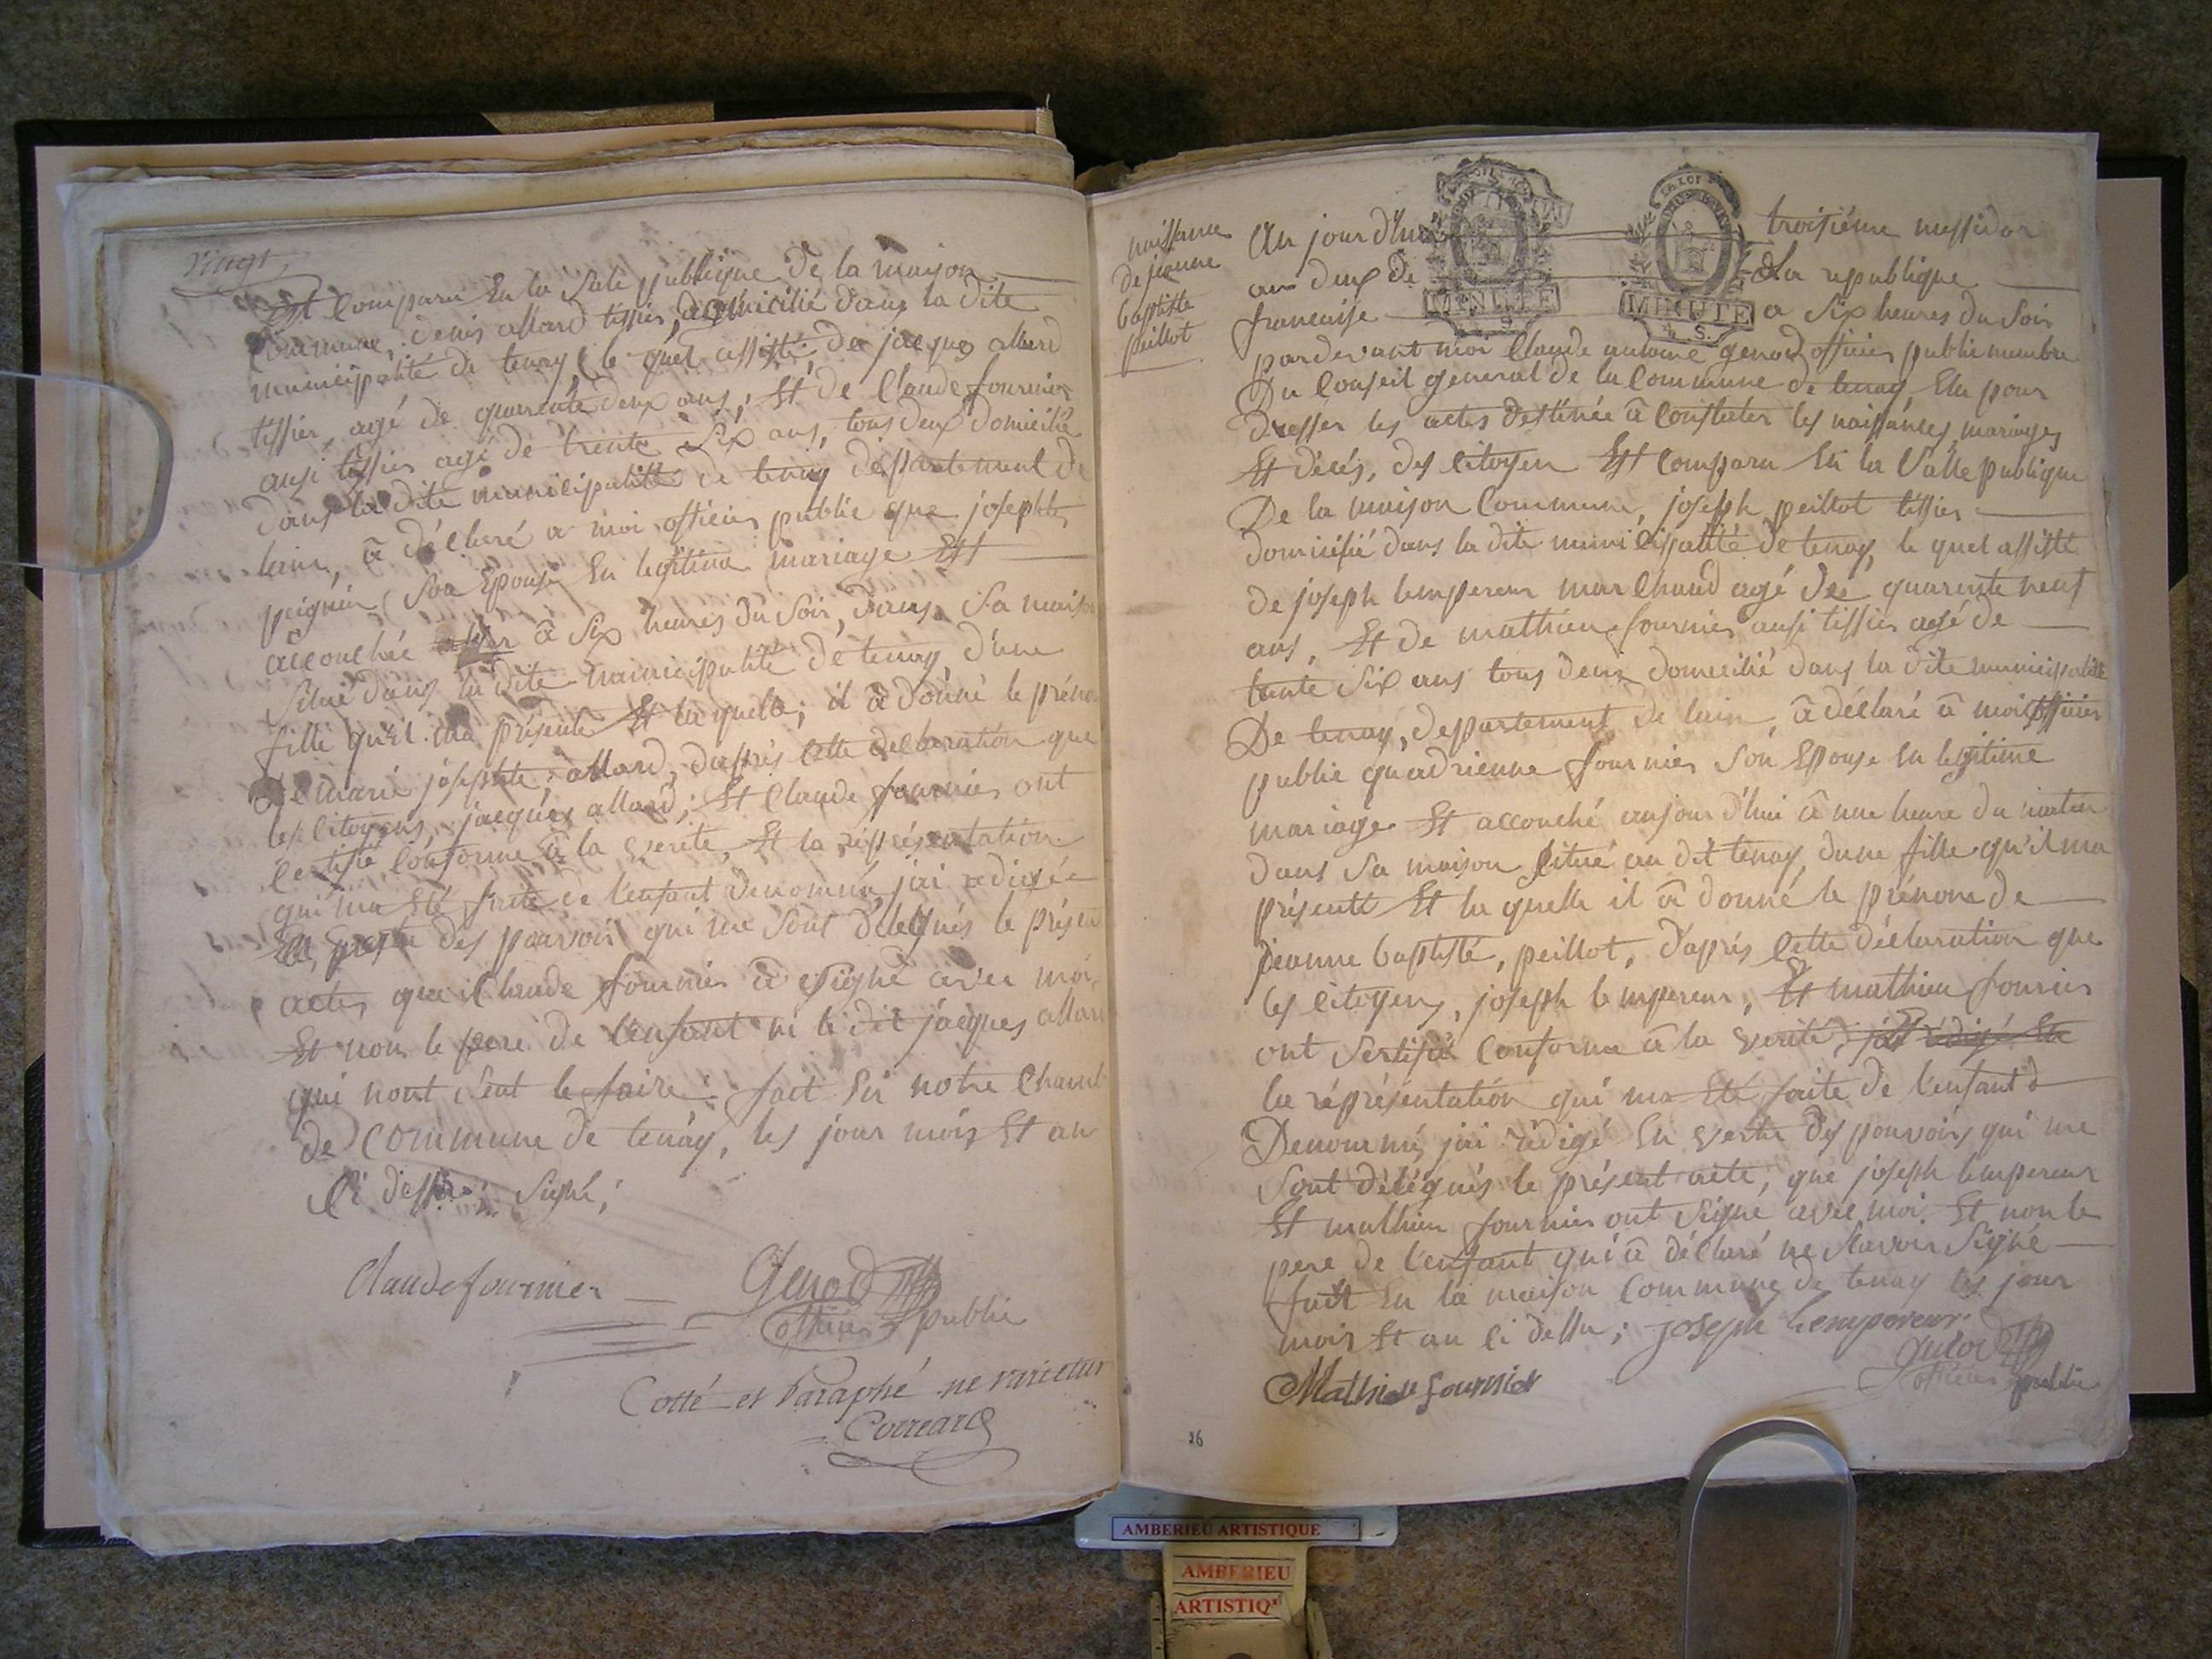 vingt,
Est Comparu En la Sale publique de la maison
Commune, denis allard tissier, domicilié dans la dite
municipalité de tenay, le quel assisté, de jacques allard
tissier, agé de quarente deux ans, Et de Claude fournier
ausi tissier agé de trente Six ans, tous deux domicilié
dans la dite municipalité de tenay département de
lain, à déclaré a moi officier public que josephte
peignin Son Epouse En légitime mariage Est
accouchée à Six heures du Soir, dans Sa maison
Situé dans la dite municipalité de tenay, d'une
fille qu'il ma présenté Et la quelle; il à donné le préno
de marie josephte; allard, d'aprés Cette declaration que
les Citoyens, jacques allard; Et Claude fournier ont
Certifié Conforme à la verité, Et la réprésentation
qui ma Eté faite de l'enfant denommé, jai redigée
des pouvoirs qui me Sont délégués le présen
actes que Claude fournier à Signé avec moi,
Et non le pere de l'enfant ni le dit jacques allard
qui nont Seut le faire: fait En notre Chamb
de Commune de tenay, les jour mois Et an
Ci dessu; Signé;
Claude fournier Genod
officier public
Cotté et Paraphé ne varietur
Correard
naissance
de jeanne
baptiste
peillot
Au jour d'hui troisiéme messidor
an deux de La republique
francaise a Six heures du Soir
LA LOI
MINUTE
MINUTE
4. S.
pardevant moi Claude antoine genod officier public membre
Du Conseil general de la Commune de tenay, Elu pour
Dresser les actes destinée à Constater les naissances, mariages
Et décés, des Citoyen Est Comparu En la Salle publique
De la maison Commune, joseph peillot tissier
domicilié dans la dite municipalité de tenay, le quel assisté
de joseph lempereur marchand agé de quarente neuf
ans, Et de mathieu fournier ausi tissier agé de
trente Six ans tous deux domicilié dans la dite municipalité
De tenay, departement de lain à déclaré à moi officier
public qu'adrienne fournier Son Epouse En légitime
mariage Est accouché aujourd'hui à une heure du matin
dans Sa maison Situé au dit tenay, dune fille qu'il ma
présenté Et la quelle il à donné le prénom de
jeanne baptisté, peillot, d'aprés Cette déclaration que
les Citoyens, joseph lempereur, Et mathieu fournier
ont Sertifié Conforme à la verité, jai rédigé En
la réprésentation qui ma Eté faite de l'enfant
Denommé, jai rédigé En vertu des pouvoirs qui me
Sont délégués le présent acte, que joseph lempereur
Et mathieu fournier ont Signé avec moi Et non le
pere de l'enfant qui à déclaré ne Savoir Signé
fait En la maison Commune de tenay les jour
mois Et an Ci dessu; joseph Lempereur
Mathieu fournier Genod
officier public
26
AMBERIEU ARTISTIQUE
AMBERIEU
ARTISTIQ